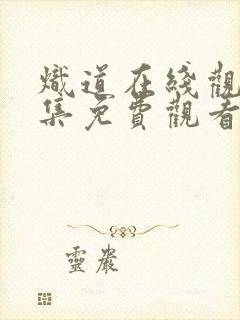 熾道在綫觀
集免費觀看
靈巖